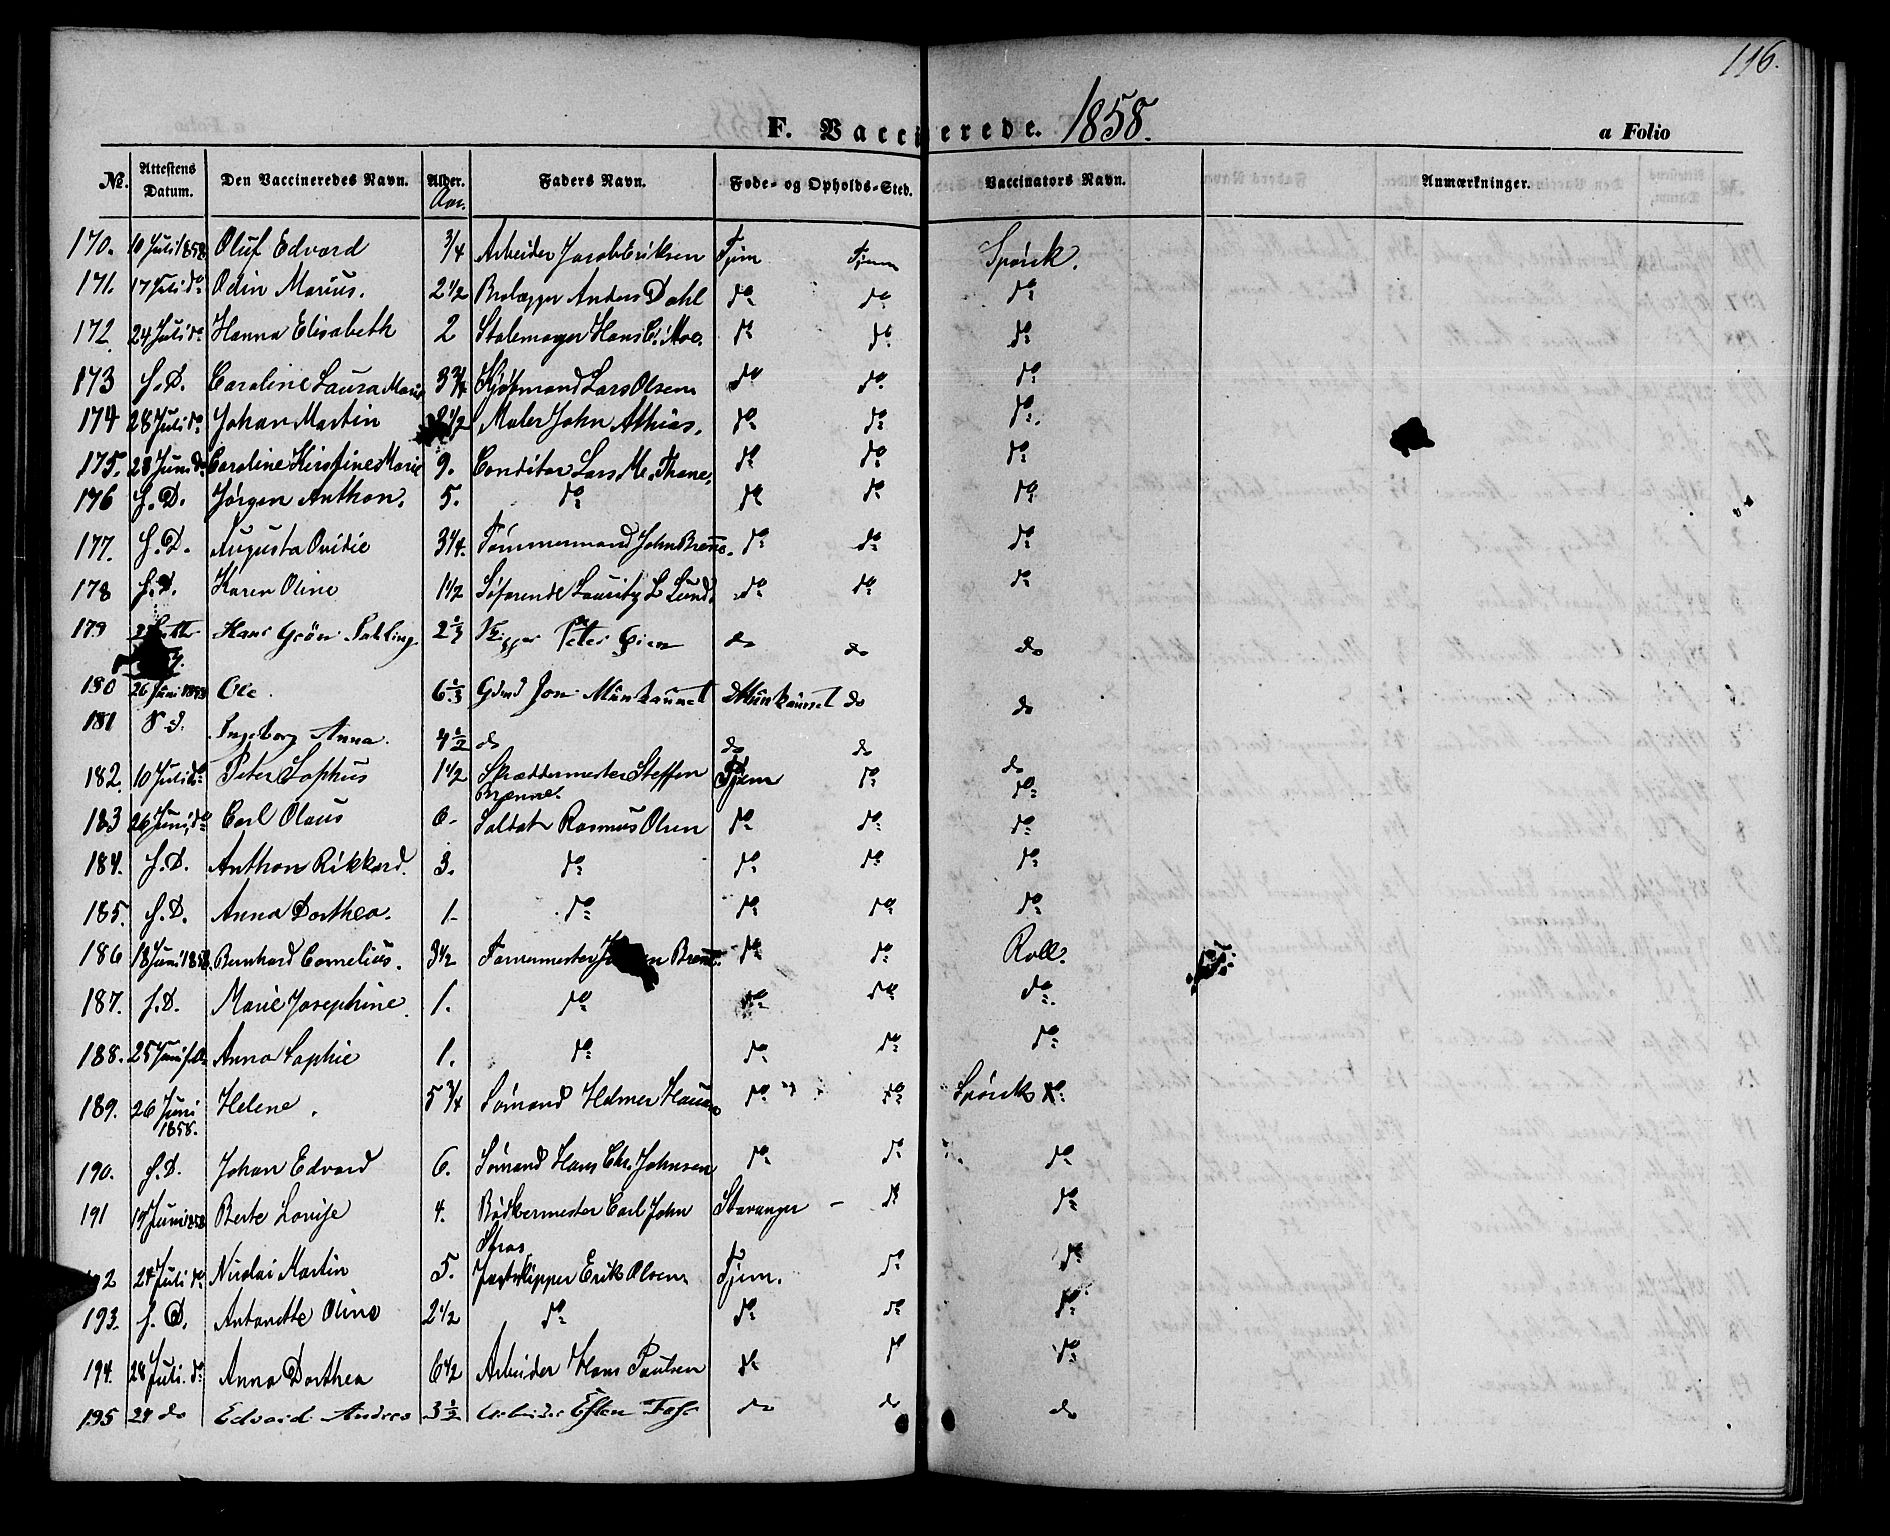 116.
F. Vaccinerede. 1858.
a Folio
No. Attestens Datum. Den Vaccineredes Navn. Alder. Aar. Faders Navn. Føde- og Opholds-Sted. Vaccinators Navn. Anmærkninger.
170. 10 Juli 1858 Oluf Edvard 3/4 Arbeider Jacob Eriksen Tjem Tjem Spörck.
171. 17 Juli do Odin Marius. 2 1/2 Brolægger Anders Dahl do do do
172. 24 Juli do Hanna Elisabeth 2 Stolemager Hans C. Moe. do do do
173 S. D. Caroline Laura Marie 3 3/4 Kjøbmand Lars Olsen do do do
174 28 Juli do Johan Martin 2 1/2 Maler John Athias. do do do
175. 28 Juni do Caroline Kirstine Marie 9. Conditor Lars M. Thane. do do do
176 S. D. Jørgen Anthon. 5. do do do do
177. S. D. Augusta Ovidie 3 1/4. Tømmermand John Brenne. do do do
178 S. D. Karen Oline 1 1/2 Søfarende Lauritz L Lund do do do
179 Hans Grön 2 2/3 Peter do do do
180 26 Juni 1858 Ole. 6 2/3 Gdmd Jon Munkaunet Munkaunet do do
181 S. d. Ingeborg Anna. 4 1/2 do do do do
182. 10 Juli do Peter Sophus 1 1/2 Skræddermester Steffen Brænne. Tjem do do
183 26 Juni do Carl Olaus 6. Soldat Rasmus Olsen do do do
184. S. D. Anthon Rikkard. 3. do do do do
185. S. D. Anna Dorthea. 1. do do do do
186 18 Juni 1858 Bernhard Cornelius. 3 1/2 do do Roll.
187. S. D. Marie Josephine. 1. do do do do
188. 25 Juni Anna Sophie 1. do do do do
189. 26 Juni 1858. Helene. 5 3/4 Sømand Helmer do do Spörck do
190. S. D. Johan Edvard 6. Sømand Hans Chr. Johnsen do do do
191 19 Juni 1858 Berte Lovise 4. Bødkermester Carl John Stavanger - do do
Strøs
192 24 Juli do Nicolai Martin 5. Jagtskipper Erik Olsen Tjem. do do
193. S. D. Antonette Oline 2 1/2 do do do do
194. 28 Juli. do Anna Dorthea 6 1/2 Arbeider Hans Paulsen do do do
195 24 do Edvard Andreas 3 1/2 Arbeider Esten do do do